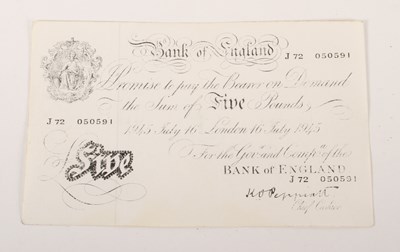 Bank of England J 72 050591
I Promise to pay the Bearer on Demand
the Sum of Five Pounds
J 72 050591
1945 July 16 London 16 July 1945
For the Gov.r and Comp.a of the
Five
BANK OF ENGLAND
J 72 050591
K O Peppiatt
Chief Cashier